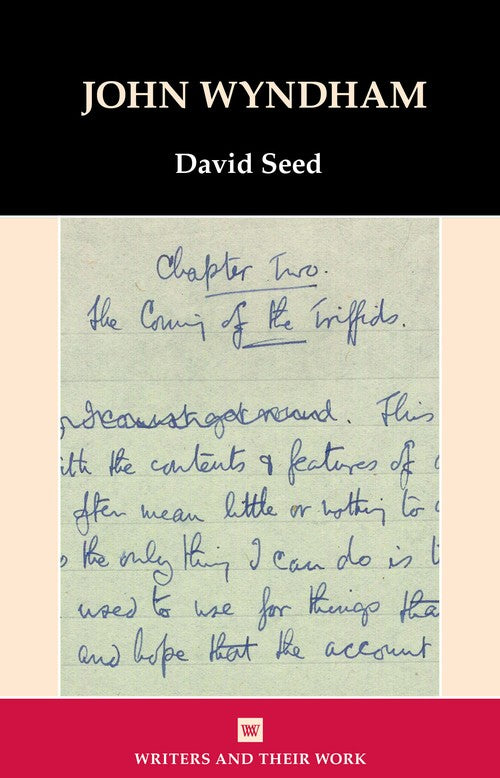 JOHN WYNDHAM
David Seed
Chapter Two.
The Coming of the Triffids.
I cannot get round. This
ith the contents & features of
often mean little or nothing to
the only thing I can do is
used to use for things tha
and hope that the account
WW
WRITERS AND THEIR WORK